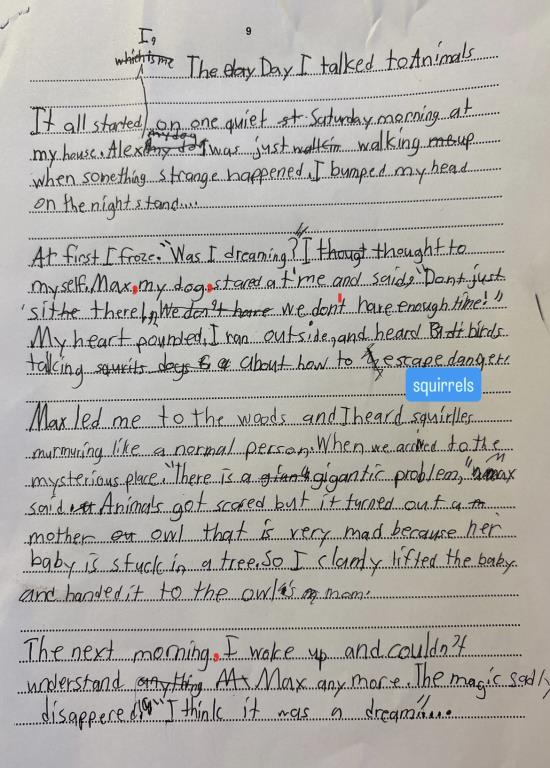 9
I,
which is me
The day Day I talked to Animals
It all started on one quiet st Saturday morning at
my dog
my house. Alex my dog I was just walkin walking me up
when something strange happened. I bumped my head
on the night stand....
At first I froze. "Was I dreaming?" I thougt thought to
myself. Max, my dog, stared at me and said, "Dont just
sit the there!, We don't have we don't have enough time!"
My heart pounded, I ran outside, and heard Birdt birds
talking squrits dogs & a about how to escape danger.
squirrels
Max led me to the woods and I heard squirlles
murmuring like a normal person. When we arrived to the
mysterious place. "There is a gigantic problem," max
said. Animals got scared but it turned out a m
mother ou owl that is very mad because her
baby is stuck in a tree. So I clamly lifted the baby
and handed it to the owl's mom.
The next morning, I woke up and couldn't
understand anything Max any more. The magic sadly
disappered. "I think it was a dream"....